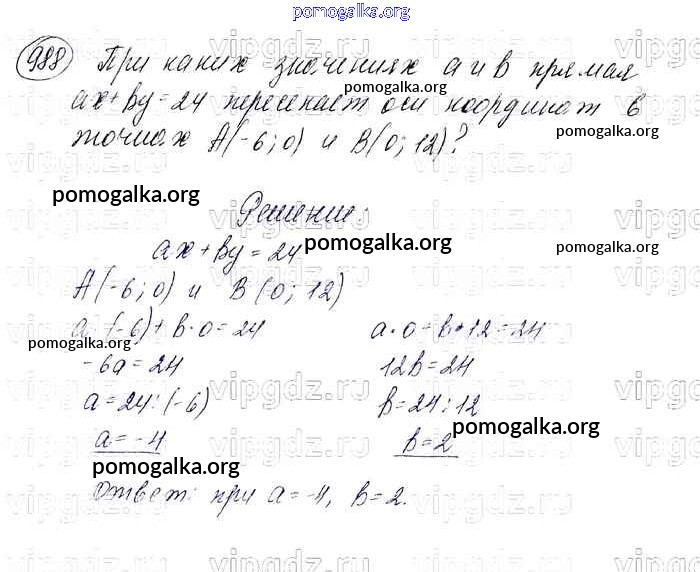 pomogalka.org
988 При каких значениях a и b прямая
ax+by=24 пересекает оси координат в
точках A(-6; 0) и B(0; 12)?
Решение:
ax+by=24
A(-6; 0) и B(0; 12)
a·(-6)+b·0=24 a·0+b·12=24
-6a=24 12b=24
a=24:(-6) b=24:12
a=-4 b=2
Ответ: при a=-4, b=2.
pomogalka.org
pomogalka.org
pomogalka.org
pomogalka.org
pomogalka.org
pomogalka.org
pomogalka.org
pomogalka.org
vipgdz.ru